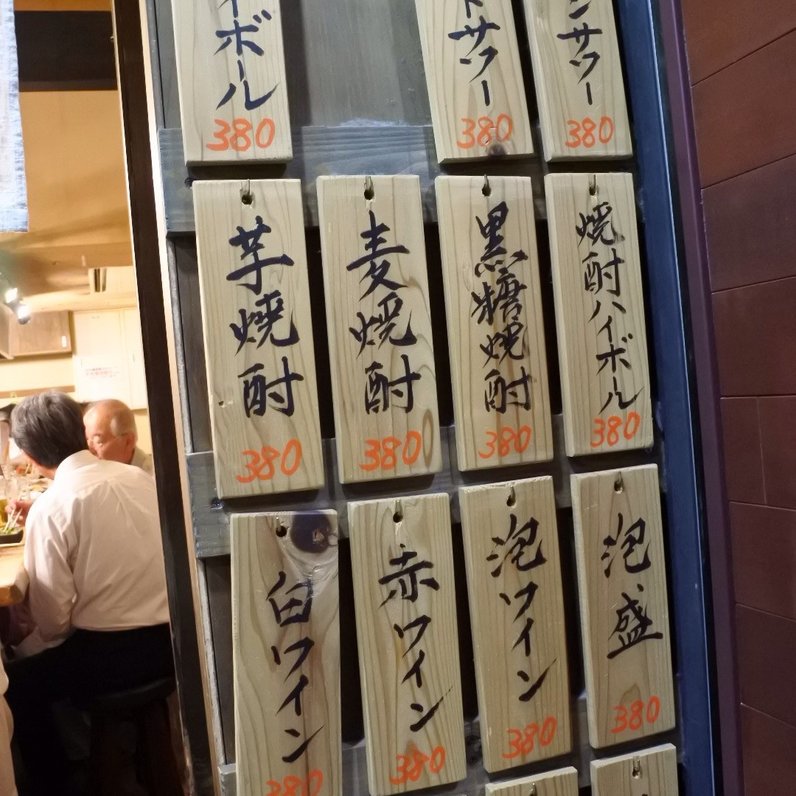 イボール
380
トサワー
380
ンサワー
380
芋焼酎
380
麦焼酎
380
黒糖焼酎
380
焼酎ハイボール
380
白ワイン
380
赤ワイン
380
泡ワイン
380
泡盛
380